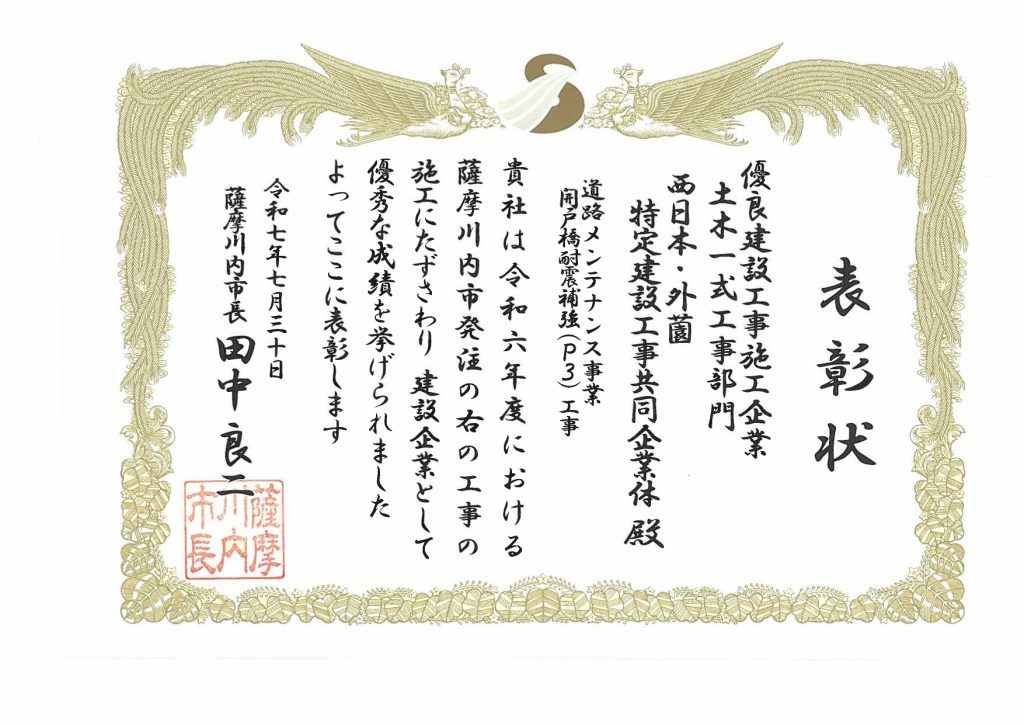 表彰状
優良建設工事施工企業
土木一式工事部門
西日本・外薗
特定建設工事共同企業体 殿
道路メンテナンス事業
開戸橋耐震補強(P3)工事
貴社は令和六年度における
薩摩川内市発注の右の工事の
施工にたずさわり 建設企業として
優秀な成績を挙げられました
よってここに表彰します
令和七年七月三十日
薩摩川内市長 田中良二
薩摩
川内
市長